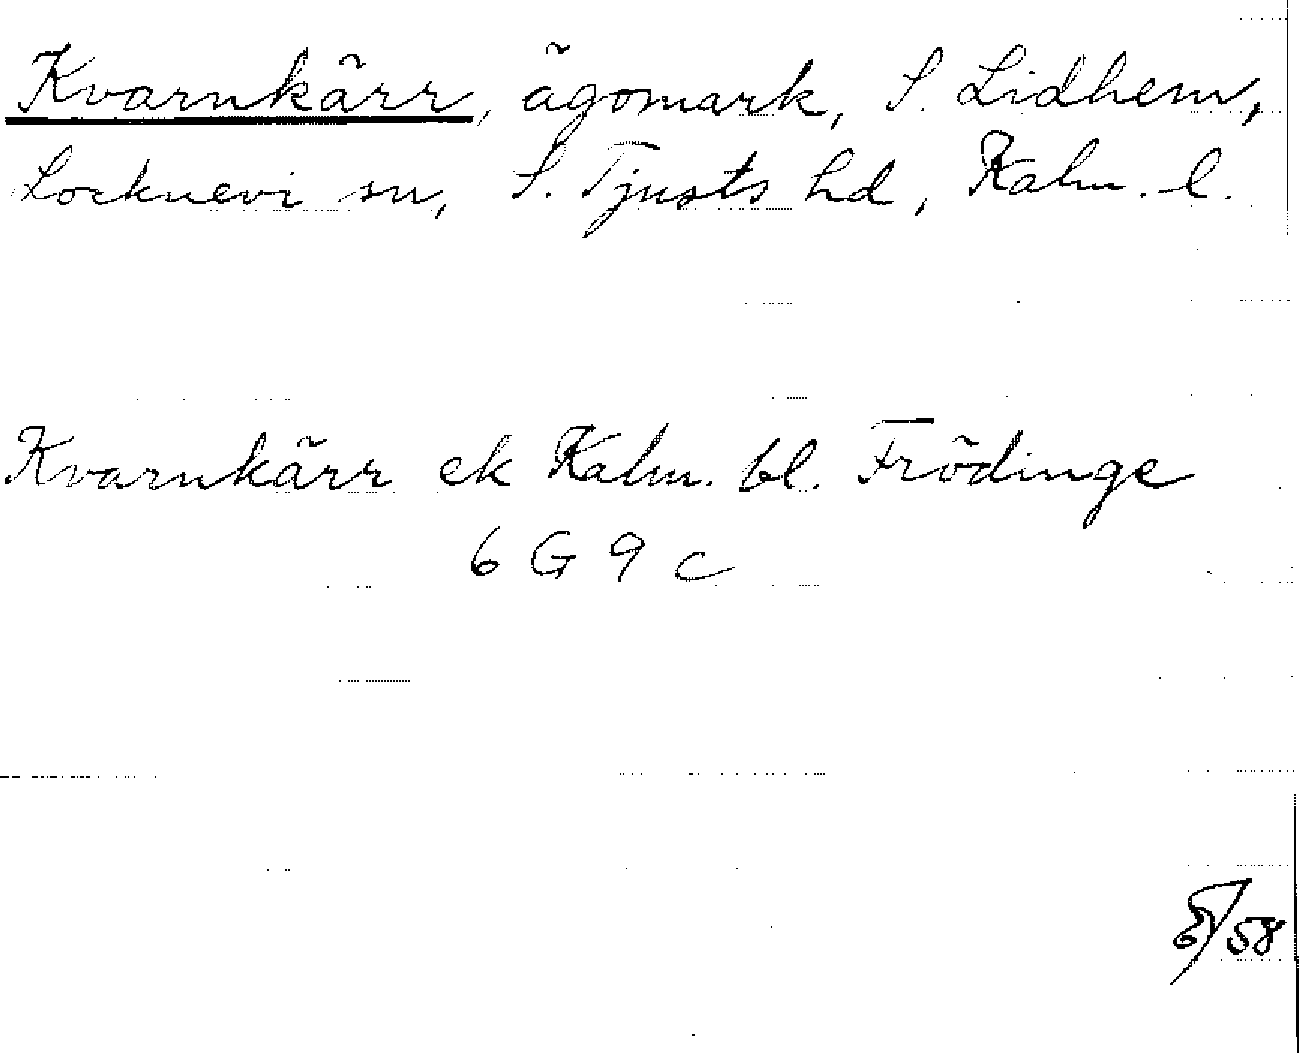 Kvarnkärr, ägomark, S. Lidhem,
Locknevi sn, S. Tjusts hd, Kalm. l.
Kvarnkärr ek Kalm. bl. Frödinge
6 G 9 c
/58